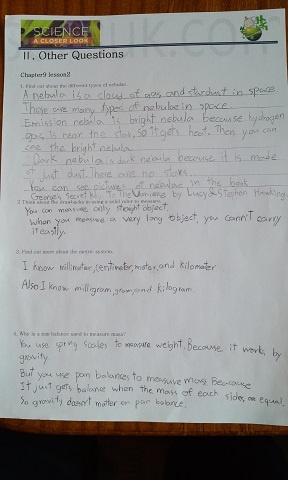 SCIENCE
A CLOSER LOOK
II. Other Questions
Chapter9 lesson2
1. Find out about the different types of nebulae.
A nebula is a cloud of gas and stardust in space.
There are many types of nebulae in space.
Emission nebula is bright nebula because hydrogen
gas is near the star, So it gets heat. Then you can
see the bright nebula.
Dark nebula is dark nebula because it is made
of just dust. There are no stars.
You can see pictures of nebulae in the book
George's Secret key to The Universe by Lucy & Stephen Hawking.
2. Think about the drawbacks in using a solid ruler to measure.
You can measure only straight object.
When you measure a very long object, you cann't carry
it easily.
3. Find out more about the metric system.
I know millimeter, centimeter, meter, and kilometer
Also I know milligram, gram, and kilogram
4. Why is a pan balance used to measure mass?
You use spring scales to measure weight. Because it works by
gravity.
But you use pan balances to measure mass Because
It just gets balance when the mass of each sides are equal.
So gravity doesn't matter on pan balance.